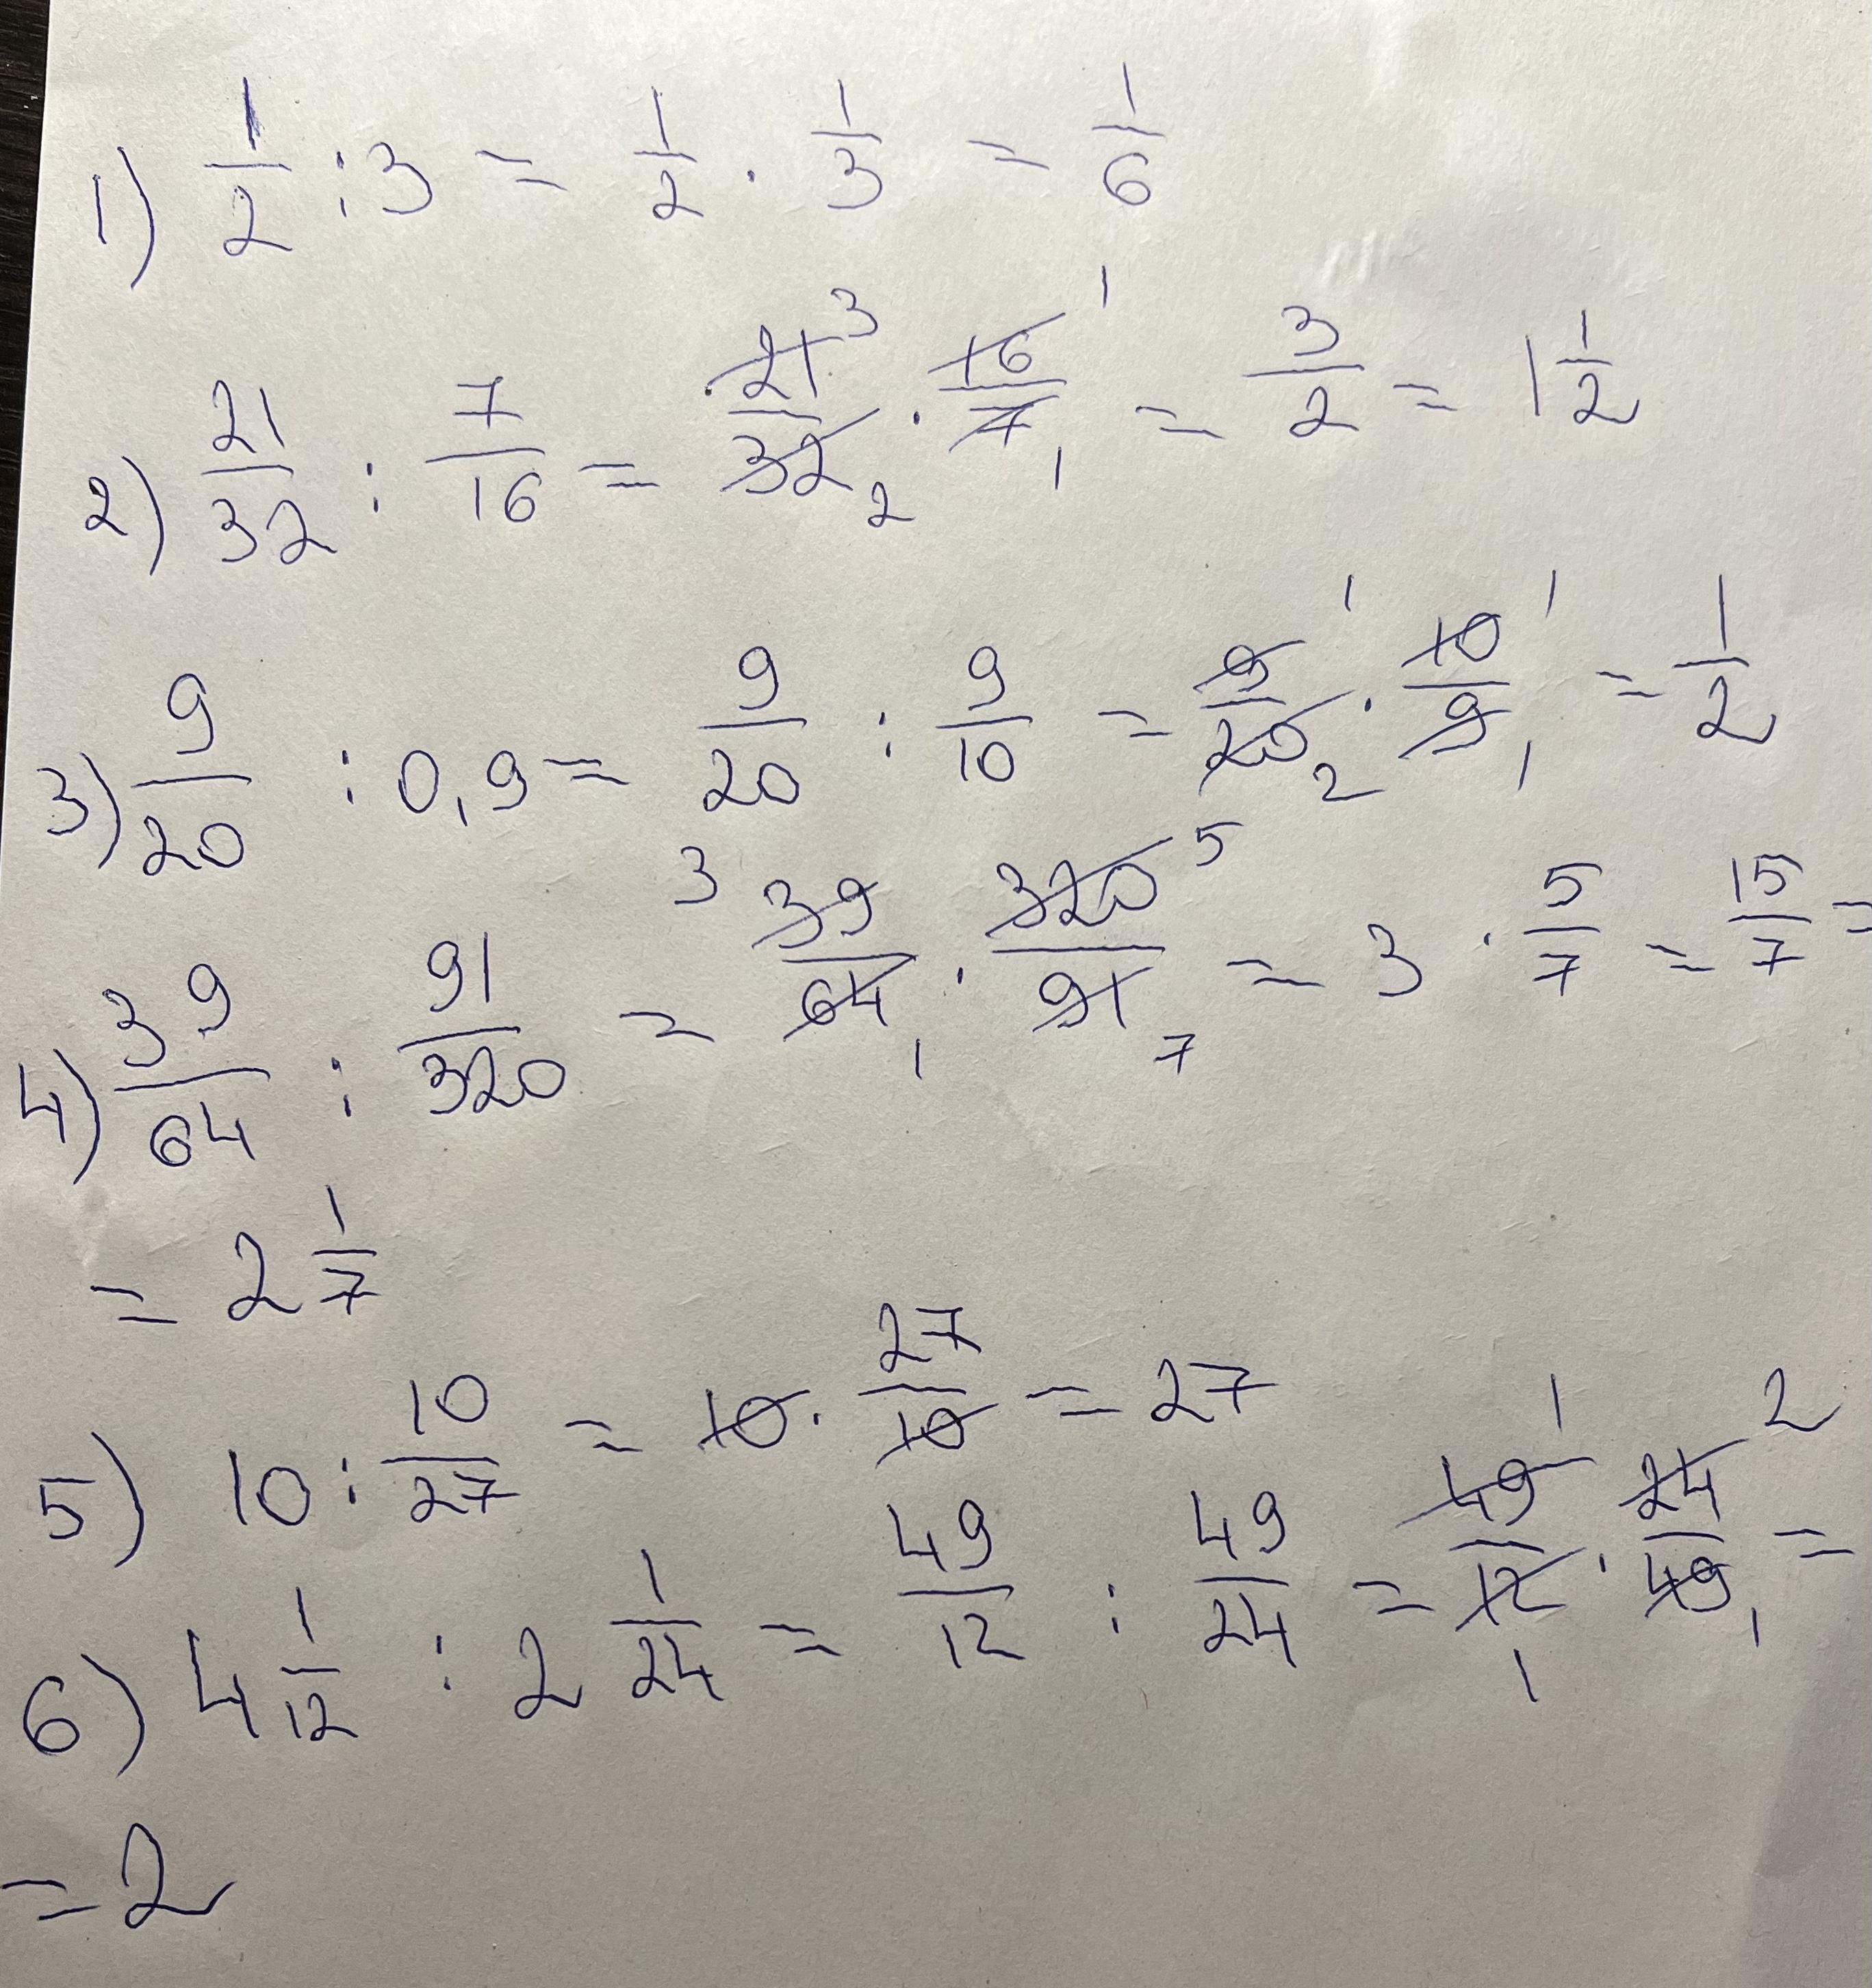 1) 1/2 : 3 = 1/2 · 1/3 = 1/6
2) 21/32 : 7/16 = 21 3/32 2 · 16 1/7 1 = 3/2 = 1 1/2
3) 9/20 : 0,9 = 9/20 : 9/10 = 9 1/20 2 · 10 1/9 1 = 1/2
4) 39/64 : 91/320 = 3 39/64 1 · 320 5/91 7 = 3 · 5/7 = 15/7 =
= 2 1/7
5) 10 : 10/27 = 10 · 27/10 = 27
6) 4 1/12 : 2 1/24 = 49/12 : 49/24 = 49 1/12 1 · 24 2/49 1 =
= 2